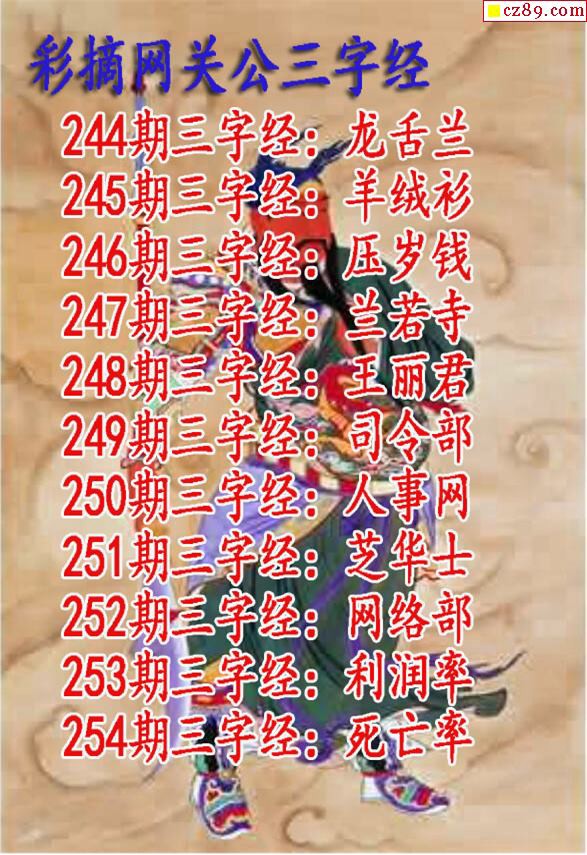 cz89.com
彩摘网关公三字经
244期三字经：龙舌兰
245期三字经：羊绒衫
246期三字经：压岁钱
247期三字经：兰若寺
248期三字经：王丽君
249期三字经：司令部
250期三字经：人事网
251期三字经：芝华士
252期三字经：网络部
253期三字经：利润率
254期三字经：死亡率